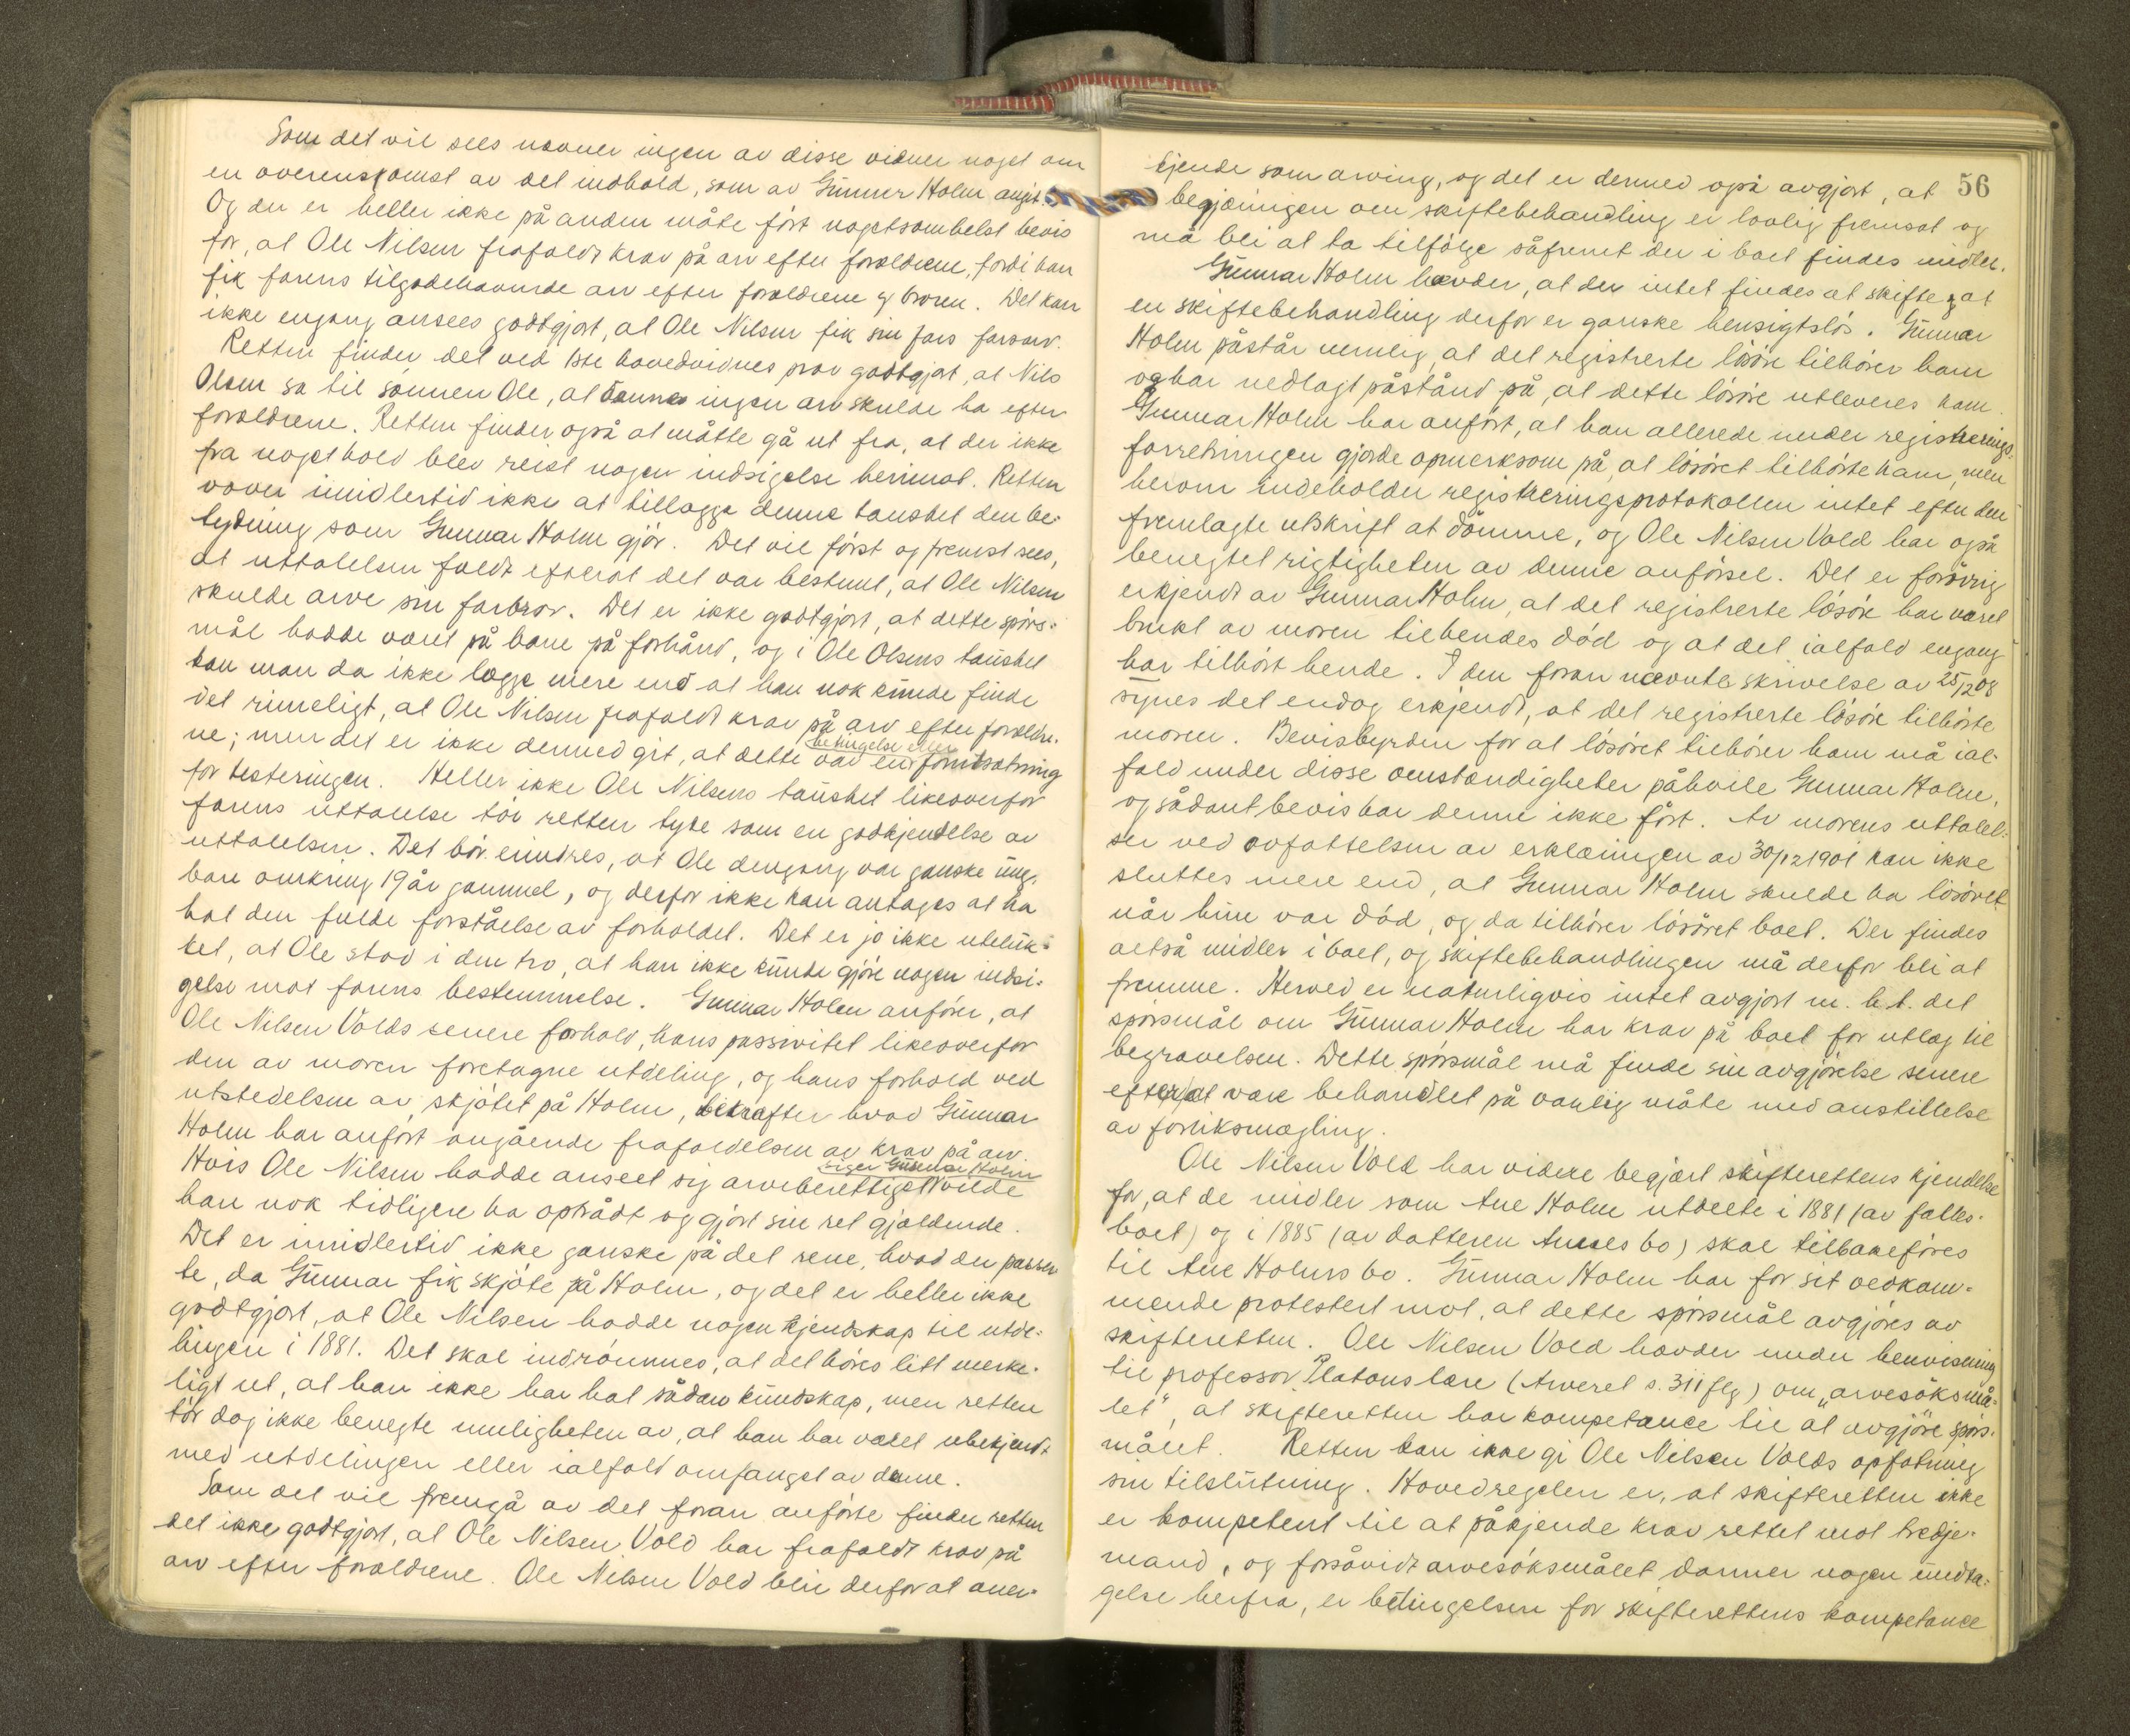 Som det vil sees nævner ingen av disse vidner noget om
en overenskomst av det indhold, som av Gunnar Holm angit.
Og der er heller ikke på anden måte ført nogetsomhelst bevis
for, at Ole Nilsen frafaldt krav på arv efter forældrene, fordi han
fik farens tilgodehavende arv efter forældrene og broren. Det kan
ikke engang ansees godtgjort, at Ole Nilsen fik sin fars farsarv.
Retten finder det ved 1ste hovedvidnes prov godtgjort, at Nils
Olsen sa til sønnen Ole, at denne ingen arv skulde ha efter
forældrene. Retten finder også at måtte gå ut fra, at der ikke
fra noget hold blev reist nogen indsigelse herimot. Retten
vover imidlertid ikke at tillægge denne taushet den be-
tydning som Gunnar Holm gjør. Det vil først og fremst sees,
at uttalelsen faldt efterat det var bestemt, at Ole Nilsen
skulde arve sin farbror. Det er ikke godtgjort, at dette spørs-
mål hadde været på bane på forhånd, og i Ole Olsens taushet
kan man da ikke lægge mere end at han nok kunde finde
det rimeligt, at Ole Nilsen frafaldt krav på arv efter forældre-
ne; men det er ikke dermed git, at dette var en betingelse eller forutsætning
for testeringen. Heller ikke Ole Nilsens taushet likeoverfor
farens uttalelse tør retten tyde som en godkjendelse av
uttalelsen. Det bør erindres, at Ole dengang var ganske ung,
bare omkring 19 år gammel, og derfor ikke kan antages at ha
hat den fulde forståelse av forholdet. Det er jo ikke uteluk-
ket, at Ole stod i den tro, at han ikke kunde gjøre nogen indsi-
gelse mot farens bestemmelse. Gunnar Holm anfører, at
Ole Nilsen Volds senere forhold, hans passivitet likeoverfor
den av moren foretagne utdeling, og hans forhold ved
utstedelsen av skjøtet på Holm, bekræfter hvad Gunnar
Holm har anført angående frafaldelsen av krav på arv.
Hvis Ole Nilsen hadde anseet sig arveberettiget siger Gunnar Holm vilde
han nok tidligere ha optrådt og gjort sin ret gjældende.
Det er imidlertid ikke ganske på det rene, hvad der passer-
te, da Gunnar fik skjøte på Holm, og det er heller ikke
godtgjort, at Ole Nilsen hadde nogen kjendskap til utde-
lingen i 1881. Det skal indrømmes, at det høres litt merke-
ligt ut, at han ikke har hat sådan kundskap, men retten
tør dog ikke benegte muligheten av, at han har været ubekjendt
med utdelingen eller ialfald omfanget av denne.
Som det vil fremgå av det foran anførte finder retten
det ikke godtgjort, at Ole Nilsen Vold har frafaldt krav på
arv efter forældrene. Ole Nilsen Vold blir derfor at aner-
56
kjende som arving, og det er dermed også avgjort, at
begjæringen om skiftebehandling er lovlig fremsat og
må bli at ta tilfølge såfremt der i boet findes midler.
Gunnar Holm hævder, at der intet findes at skifte og at
en skiftebehandling derfor er ganske hensigtsløs. Gunnar
Holm påstår nemlig, at det registrerte løsøre tilhører ham
og har nedlagt påstand på, at dette løsøre utleveres ham.
Gunnar Holm har anført, at han allerede under registrerings-
forretningen gjorde opmerksom på, at løsøret tilhørte ham, men
herom indeholder registreringsprotokollen intet efter den
fremlagte utskrift at dømme, og Ole Nilsen Vold har også
benegtet rigtigheten av denne anførsel. Det er forøvrig
erkjendt av Gunnar Holm, at det registrerte løsøre har været
brukt av moren til hendes død og at det ialfald engang
har tilhørt hende. I den foran nævnte skrivelse av 25/2 08
synes det endog erkjendt, at det registrerte løsøre tilhørte
moren. Bevisbyrden for at løsøret tilhører ham må ial-
fald under disse omstændigheter påhvile Gunnar Holm,
og sådant bevis har denne ikke ført. Av morens uttalel-
ser ved avfattelsen av erklæringen av 30/12 1901 kan ikke
sluttes mere end, at Gunnar Holm skulde ha løsøret
når hun var død, og da tilhører løsøret boet. Der findes
altså midler i boet, og skiftebehandlingen må derfor bli at
fremme. Herved er naturligvis intet avgjort m. h. t. det
spørsmål om Gunnar Holm har krav på boet for utlæg til
begravelsen. Dette spørsmål må finde sin avgjørelse senere
efter at være behandlet på vanlig måte med anstillelse
av forliksmægling.
Ole Nilsen Vold har videre begjært skifterettens kjendelse
for, at de midler som Ane Holm utdeelte i 1881 (av fælles-
boet) og i 1885 (av datteren Annes bo) skal tilbakeføres
til Ane Holms bo. Gunnar Holm har for sit vedkom-
mende protestert mot, at dette spørsmål avgjøres av
skifteretten. Ole Nilsen Vold hævder under henvisning
til professor Platous lære (Arveret s. 311 flg) om "arvesøksmå-
let", at skifteretten har kompetance til at avgjøre spørs-
målet. Retten kan ikke gi Ole Nilsen Volds opfatning
sin tilslutning. Hovedregelen er, at skifteretten ikke
er kompetent til at påkjende krav rettet mot tredje-
mand, og forsåvidt arvesøksmålet danner nogen undta-
gelse herfra, er betingelsen for skifterettens kompetance